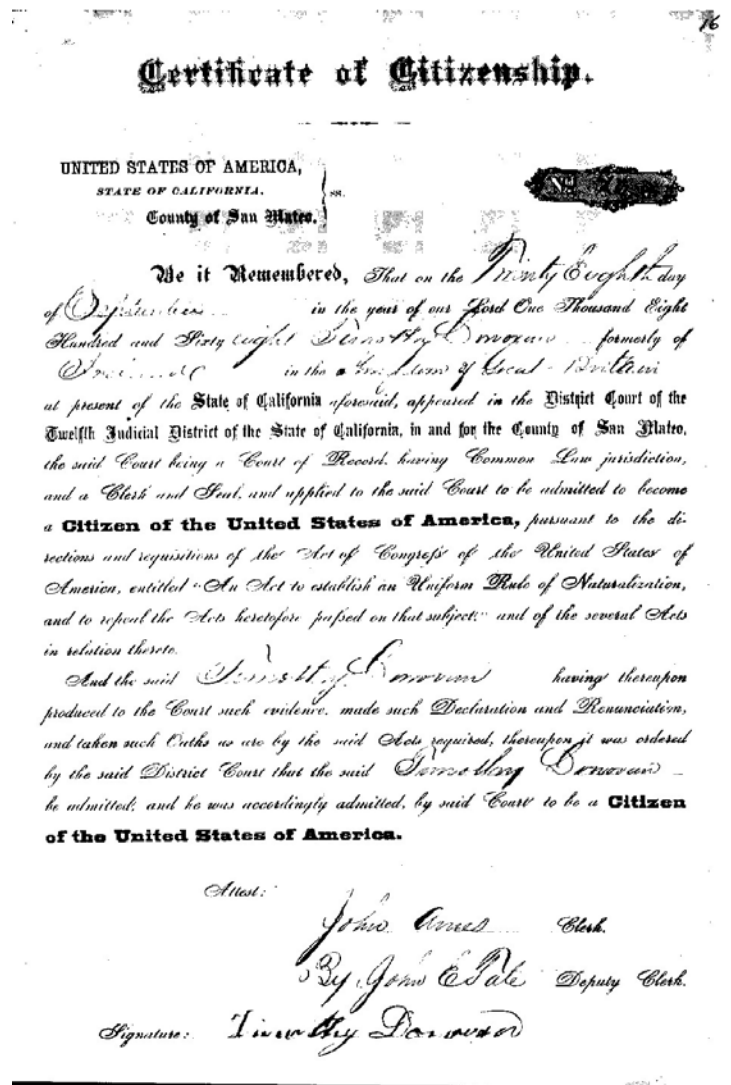 16
Certificate of Citizenship.
UNITED STATES OF AMERICA,
STATE OF CALIFORNIA.
County of San Mateo.
ss.
No.
Be it Remembered, That on the Twenty Eighth day
of September in the year of our Lord One Thousand Eight
Hundred and Sixty eight Timothy Donovan formerly of
Ireland in the Kingdom of Great Britain
at present of the State of California aforesaid, appeared in the District Court of the
Twelfth Judicial District of the State of California, in and for the County of San Mateo,
the said Court being a Court of Record, having Common Law jurisdiction,
and a Clerk and Seal, and applied to the said Court to be admitted to become
a Citizen of the United States of America, pursuant to the di-
rections and requisitions of the Act of Congress of the United States of
America, entitled "An Act to establish an Uniform Rule of Naturalization,
and to repeal the Acts heretofore passed on that subject;" and of the several Acts
in relation thereto.
And the said Timothy Donovan having thereupon
produced to the Court such evidence, made such Declaration and Renunciation,
and taken such Oaths as are by the said Acts required, thereupon it was ordered
by the said District Court that the said Timothy Donovan
be admitted, and he was accordingly admitted, by said Court to be a Citizen
of the United States of America.
Attest:
John Ames Clerk.
By John E Tate Deputy Clerk.
Signature: Timothy Donovan